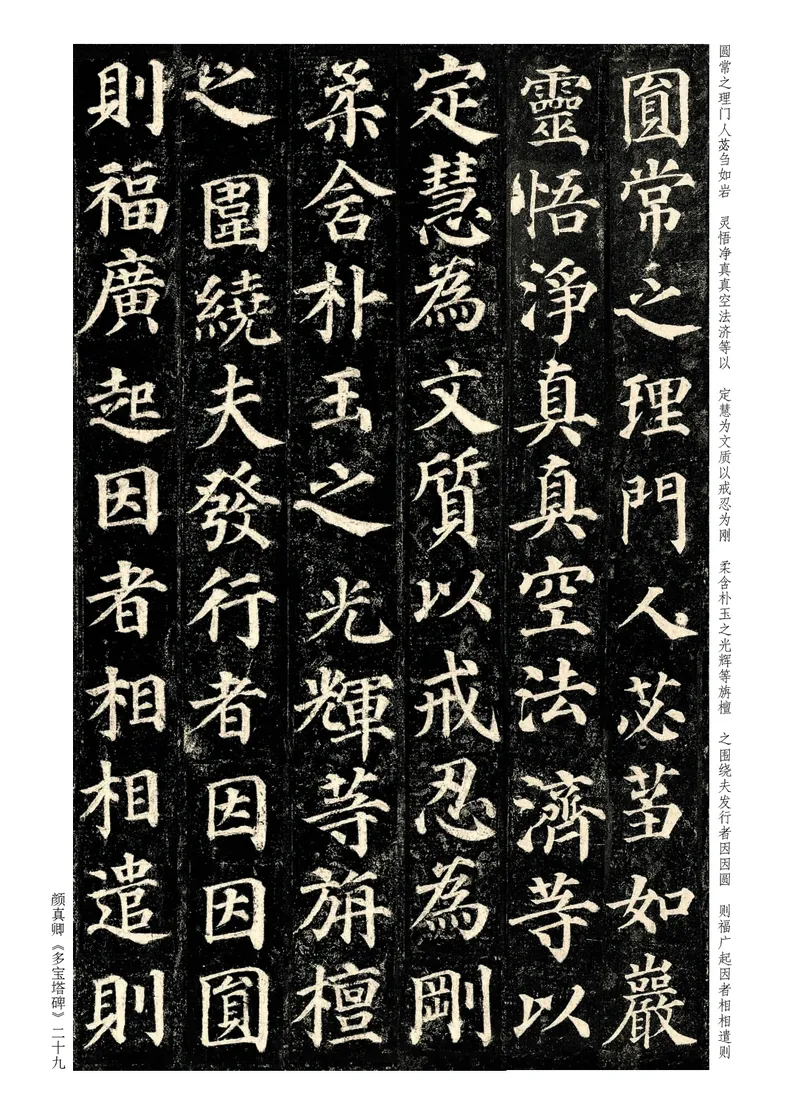 圆常之理门人苾刍如岩 灵悟净真真空法济等以 定慧为文质以戒忍为刚 柔含朴玉之光辉等旃檀 之围绕夫发行者因因圆 则福广起因者相相遣则
圓常之理門人苾蒭如巖
靈悟淨真真空法濟等以
定慧為文質以戒忍為剛
柔含朴玉之光輝等旃檀
之圍繞夫發行者因因圓
則福廣起因者相相遣則
颜真卿《多宝塔碑》二十九